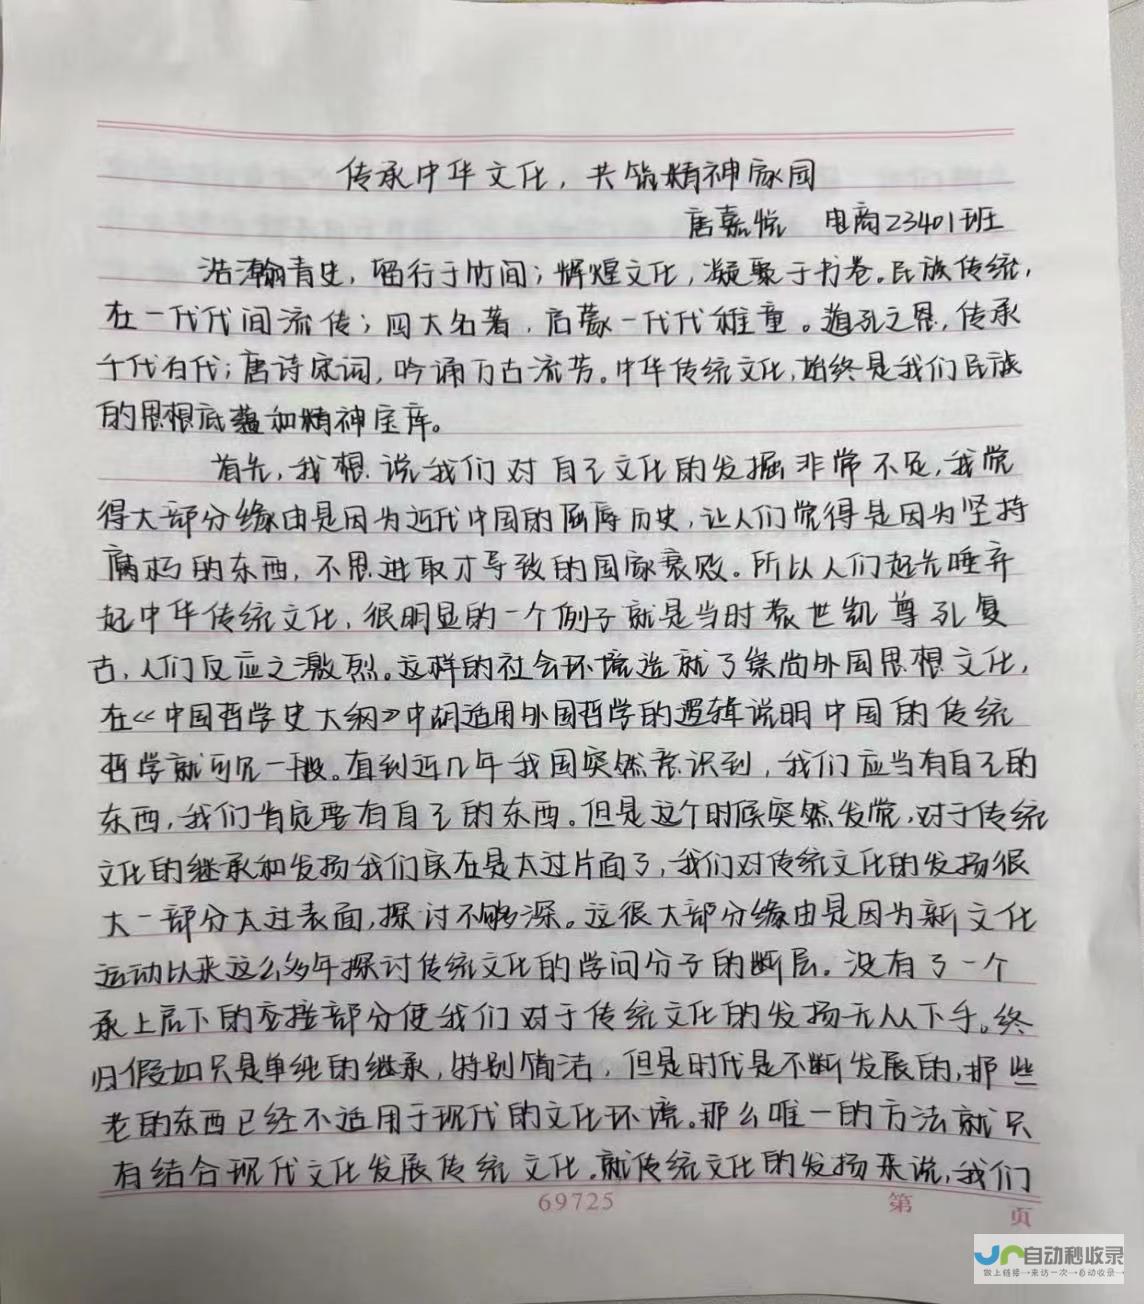 传承中华文化，共筑精神家园
唐嘉悦 电商23401班
浩瀚青史，留行于竹间；辉煌文化，凝聚于书卷。民族传统，
在一代代间流传；四大名著，启蒙一代代稚童。道孔之思，传承
千代百代；唐诗宋词，吟诵万古流芳。中华传统文化，始终是我们民族
的思想底蕴和精神宝库。
首先，我想说我们对自己文化的发掘非常不足，我觉
得大部分缘由是因为近代中国的屈辱历史，让人们觉得是因为坚持
腐朽的东西，不思进取才导致的国家衰败。所以人们起先唾弃
起中华传统文化，很明显的一个例子就是当时袁世凯尊孔复
古，人们反应之激烈。这样的社会环境造就了崇尚外国思想文化，
在《中国哲学史大纲》中胡适用外国哲学的逻辑说明中国的传统
哲学就可见一般。直到近几年我国突然意识到，我们应当有自己的
东西，我们肯定要有自己的东西。但是这个时候突然发觉，对于传统
文化的继承和发扬我们实在是太过片面了，我们对传统文化的发扬很
大一部分太过表面，探讨不够深。这很大部分缘由是因为新文化
运动以来这么多年探讨传统文化的学问分子的断层。没有了一个
承上启下的连接部分使我们对于传统文化的发扬无从下手。终
归假如只是单纯的继承，特别简洁，但是时代是不断发展的，那些
老的东西已经不适用于现代的文化环境。那么唯一的方法就只
有结合现代文化发展传统文化。就传统文化的发扬来说，我们
69725 第 页
自动秒收录
做上链接→来访一次→自动收录→